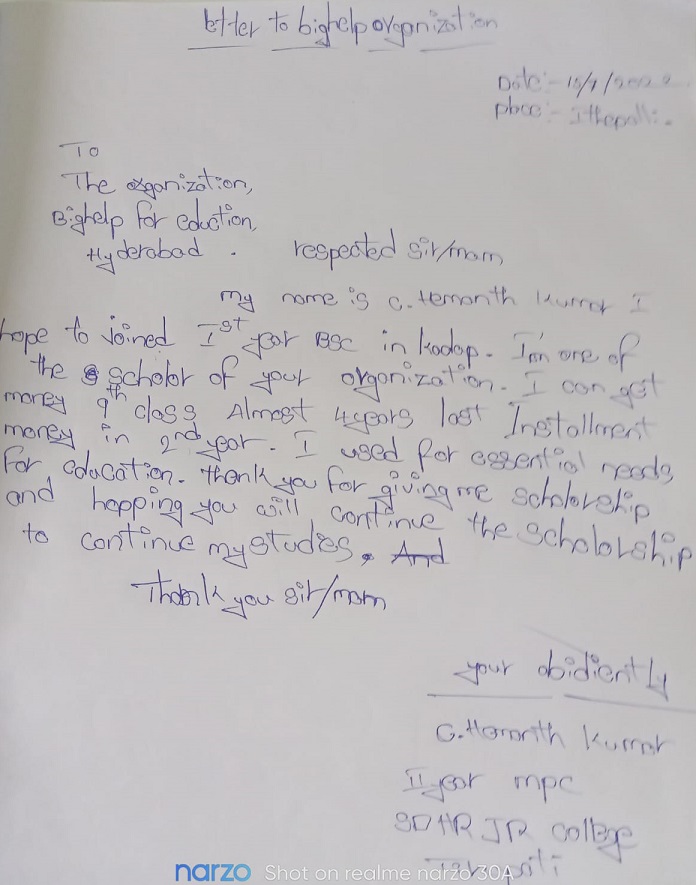 letter to bighelp organization
Date:- 15/7/2022
place:- Ithepalli.
To
The organization,
Bighelp for eduction,
Hyderabad .
respected sir/mam
my name is C. Hemanth kumar I
hope to joined Ist year BSC in kadap. I'm one of
the scholar of your organization. I can get
money 9th class Almost 4years last Installment
money in 2nd year. I used for essential needs
for education. thank you for giving me scholarship
and hopping you will continue the scholarship
to continue my studies. And
Thank you sir/mam
your obidiently
C.Hemanth kumar
II year mpc
SDHR JR college
narzo Shot on realme narzo 30A